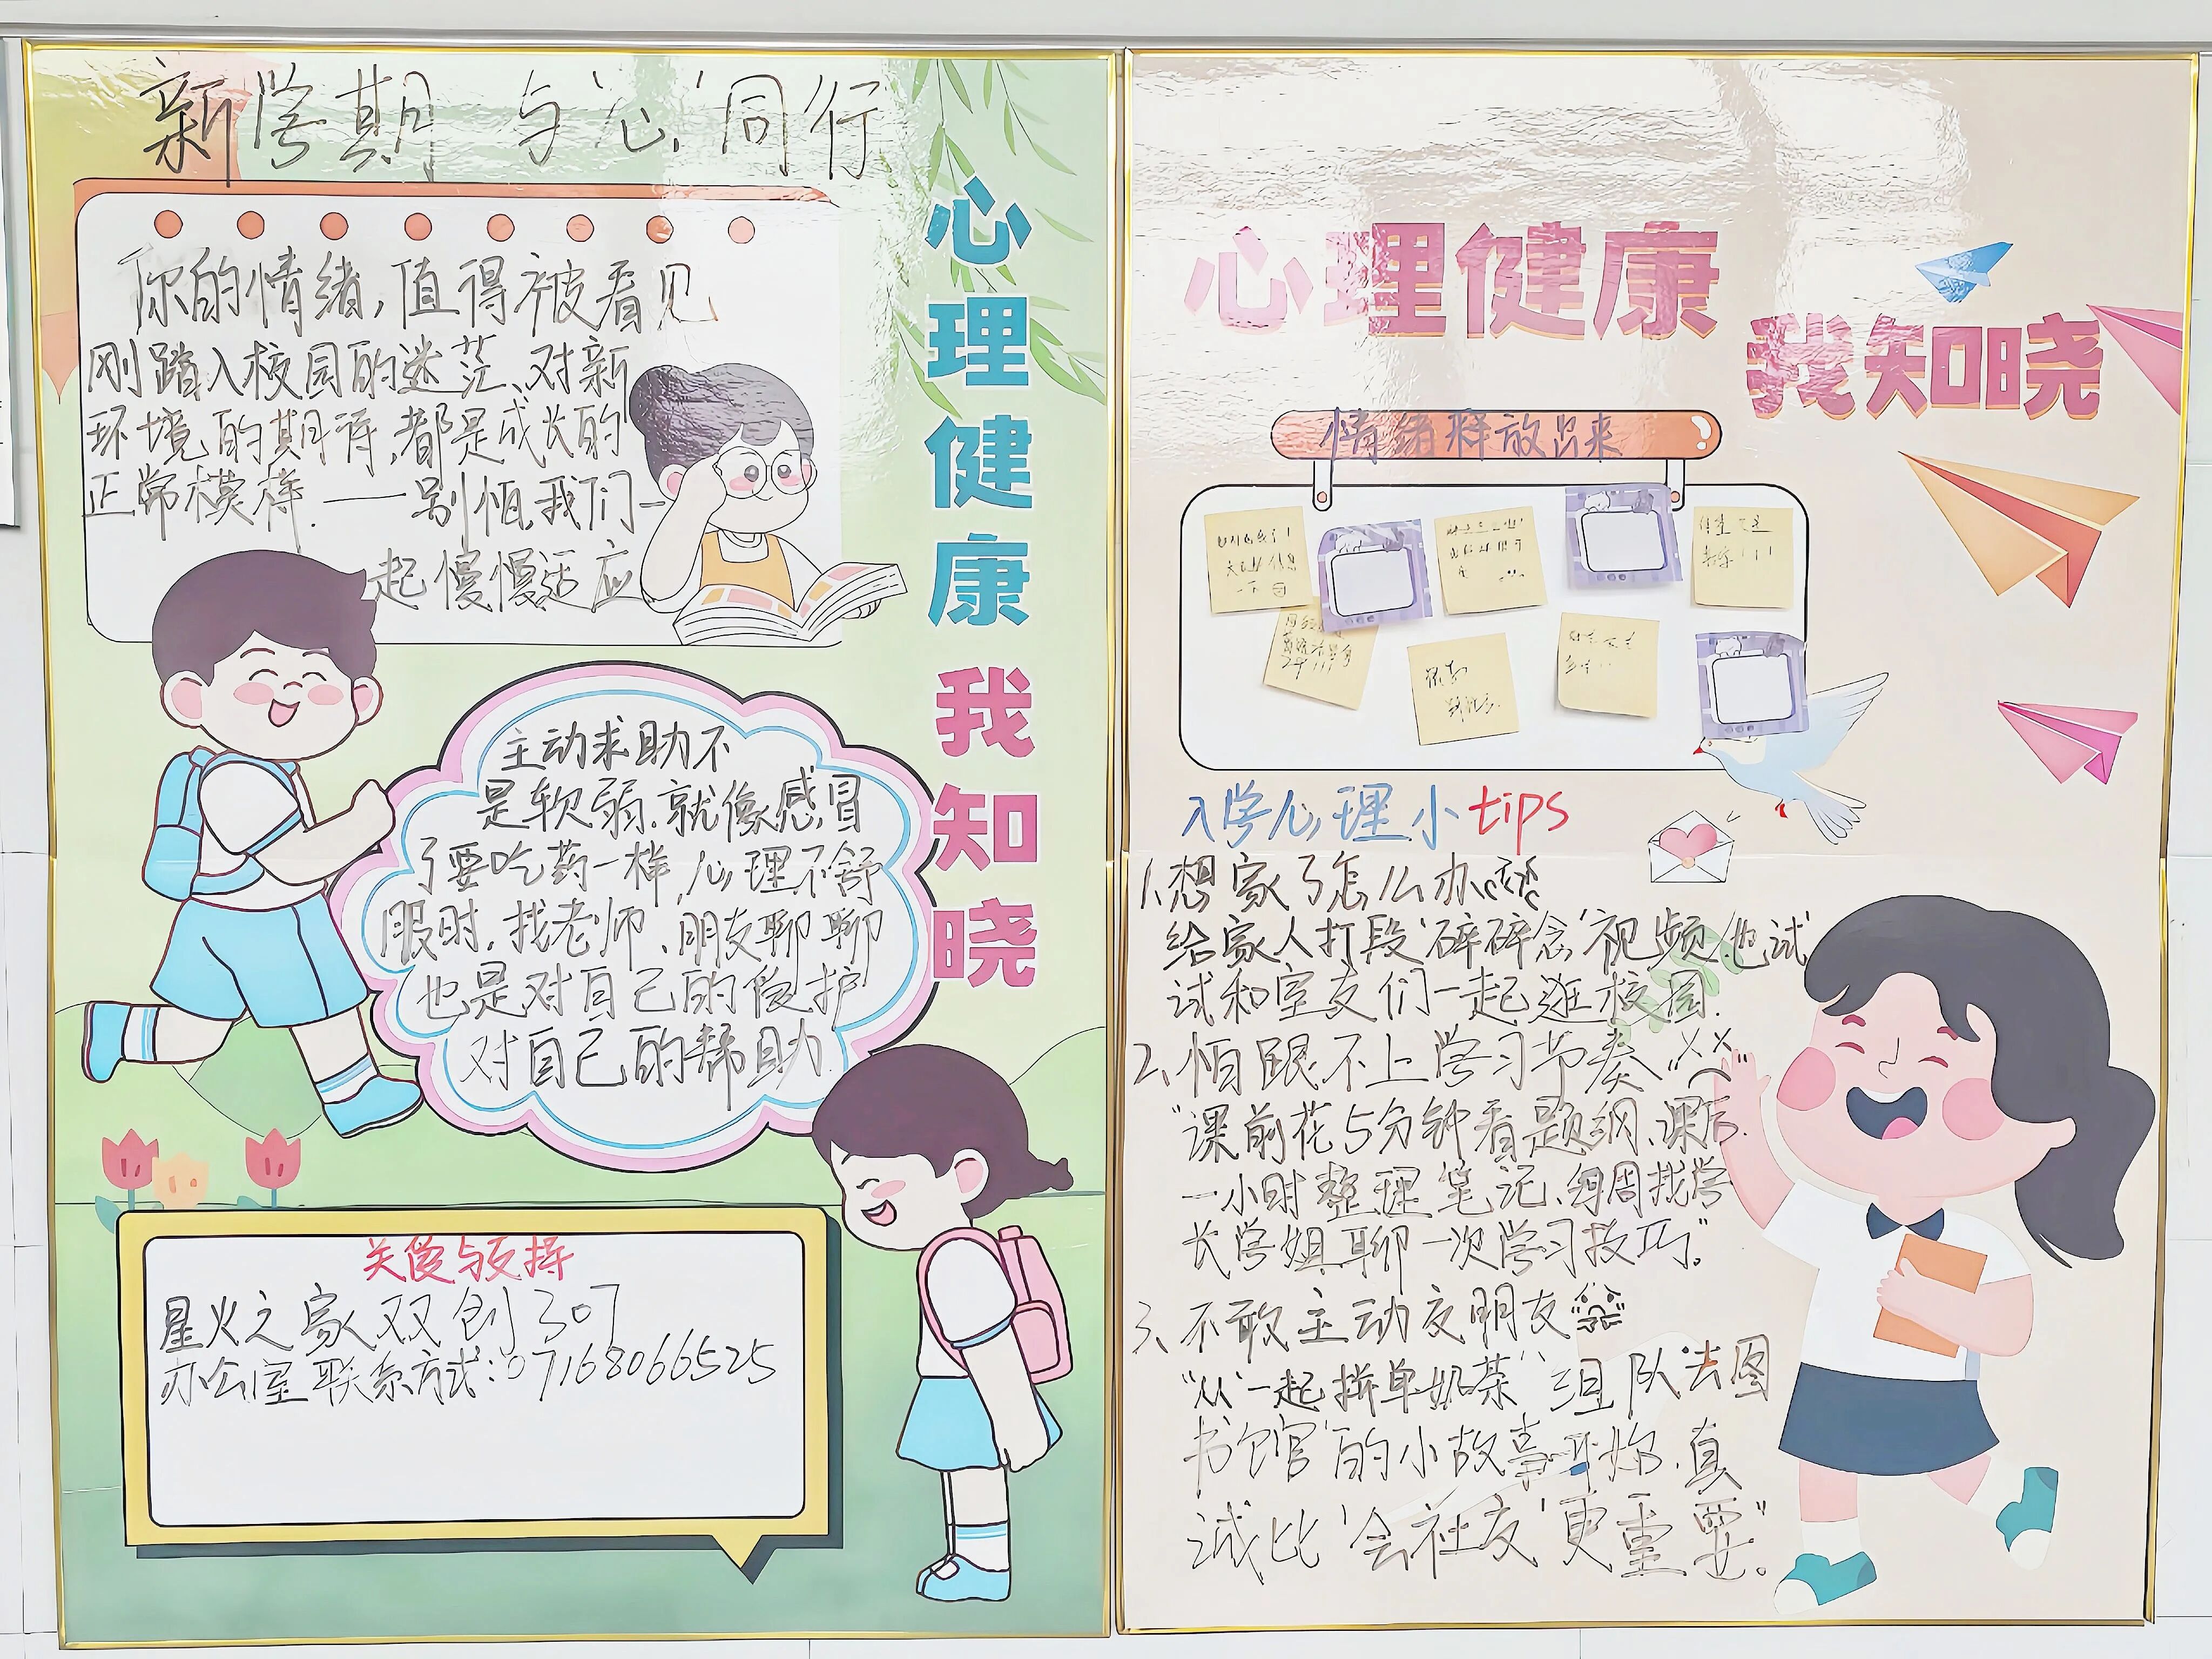 新学期 与'心'同行
你的情绪,值得被看见
刚踏入校园的迷茫、对新
环境的期待,都是成长的
正常模样.——别怕,我们一
起慢慢适应
心理健康 我知晓
主动求助不
是软弱.就像感冒
了要吃药一样,心理不舒
服时,找老师、朋友聊聊
也是对自己的爱护
对自己的帮助.
关爱与支持
星火之家双创307
办公室联系方式:07168066525
心理健康
我知晓
情绪释放出来
入学心理小tips
1.想家了怎么办
给家人打段'碎碎念'视频.也试
试和室友们一起逛校园.
2、怕跟不上学习节奏
"课前花5分钟看题纲、课后
一小时整理笔记、每周找学
长学姐聊一次学习技巧."
3、不敢主动交朋友
"从'一起拼单奶茶''组队去图
书馆'的小故事开始.真
诚比'会社交'更重要"。